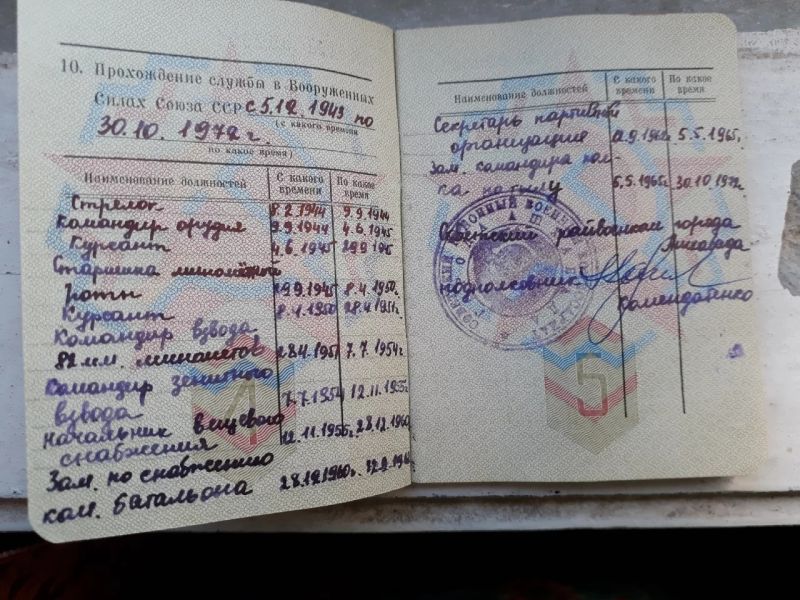 10. Прохождение службы в Вооруженных
Силах Союза ССР с 5.12.1943 по
(с какого времени
30.10.1972 г.
по какое время)
Наименование должностей С какого времени По какое время
Стрелок 8.2.1944 9.9.1944
Командир орудия 9.9.1944 4.6.1945
Курсант 4.6.1945 29.9.1945
Старшина миномётной
роты 29.9.1945 8.4.1950
Курсант 28.4.1951г.
Командир взвода
82 мм. миномётов 28.4.1951 7.7.1954г
Командир зенитного
взвода 7.7.1954 12.11.1955г
Начальник вещевого
снабжения 12.11.1955г. 28.12.1960
Зам. по снабжению
ком. батальона 28.12.1960г.
4
Наименование должностей С какого времени По какое время
Секретарь партийной
организации 5.5.1965г.
Зам. командира пол-
ка по тылу 5.5.1965г 30.10.1972г
Советский райвоенком города
Ашхабада
подполковник
Коменданко
5